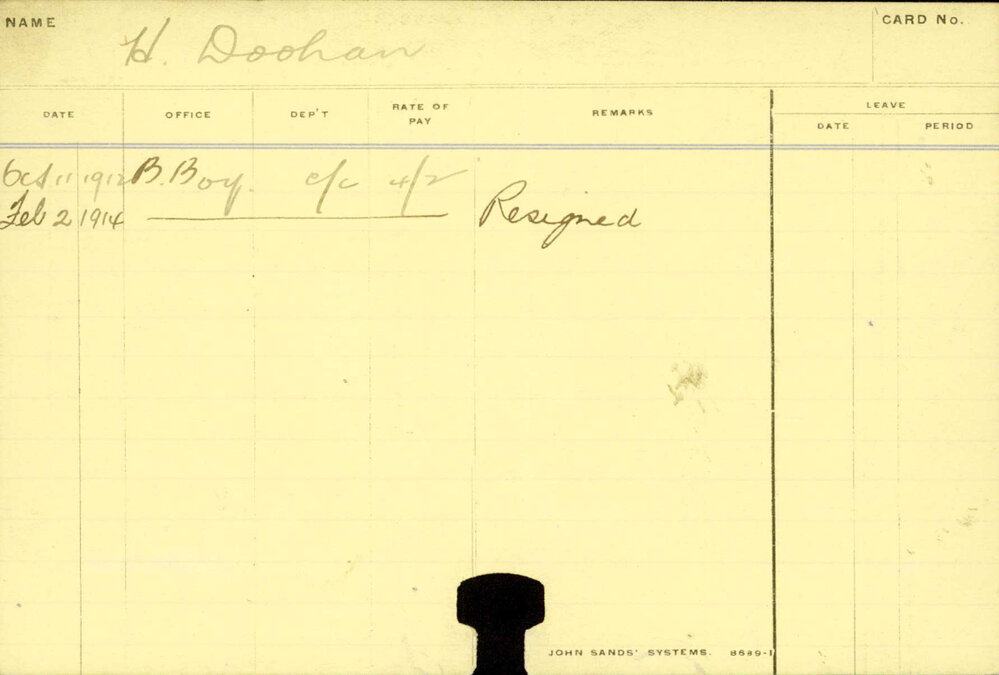 NAME H. Doohan CARD No.
DATE OFFICE DEP'T RATE OF PAY REMARKS LEAVE
DATE PERIOD
Oct 11 1912 B. Boy. c/c 4/2
Feb 2 1914 Resigned
JOHN SANDS' SYSTEMS. 8689-1